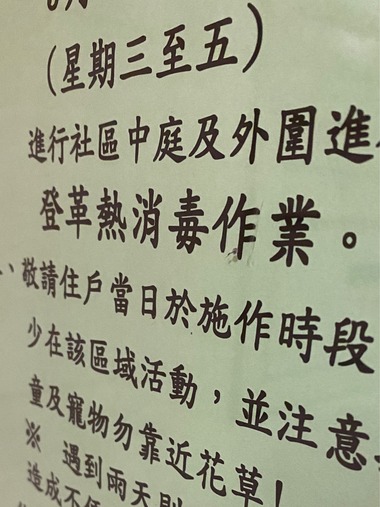 (星期三至五)
進行社區中庭及外圍進
登革熱消毒作業。
、敬請住戶當日於施作時段
少在該區域活動，並注意
童及寵物勿靠近花草!
※ 遇到雨天則
造成不便